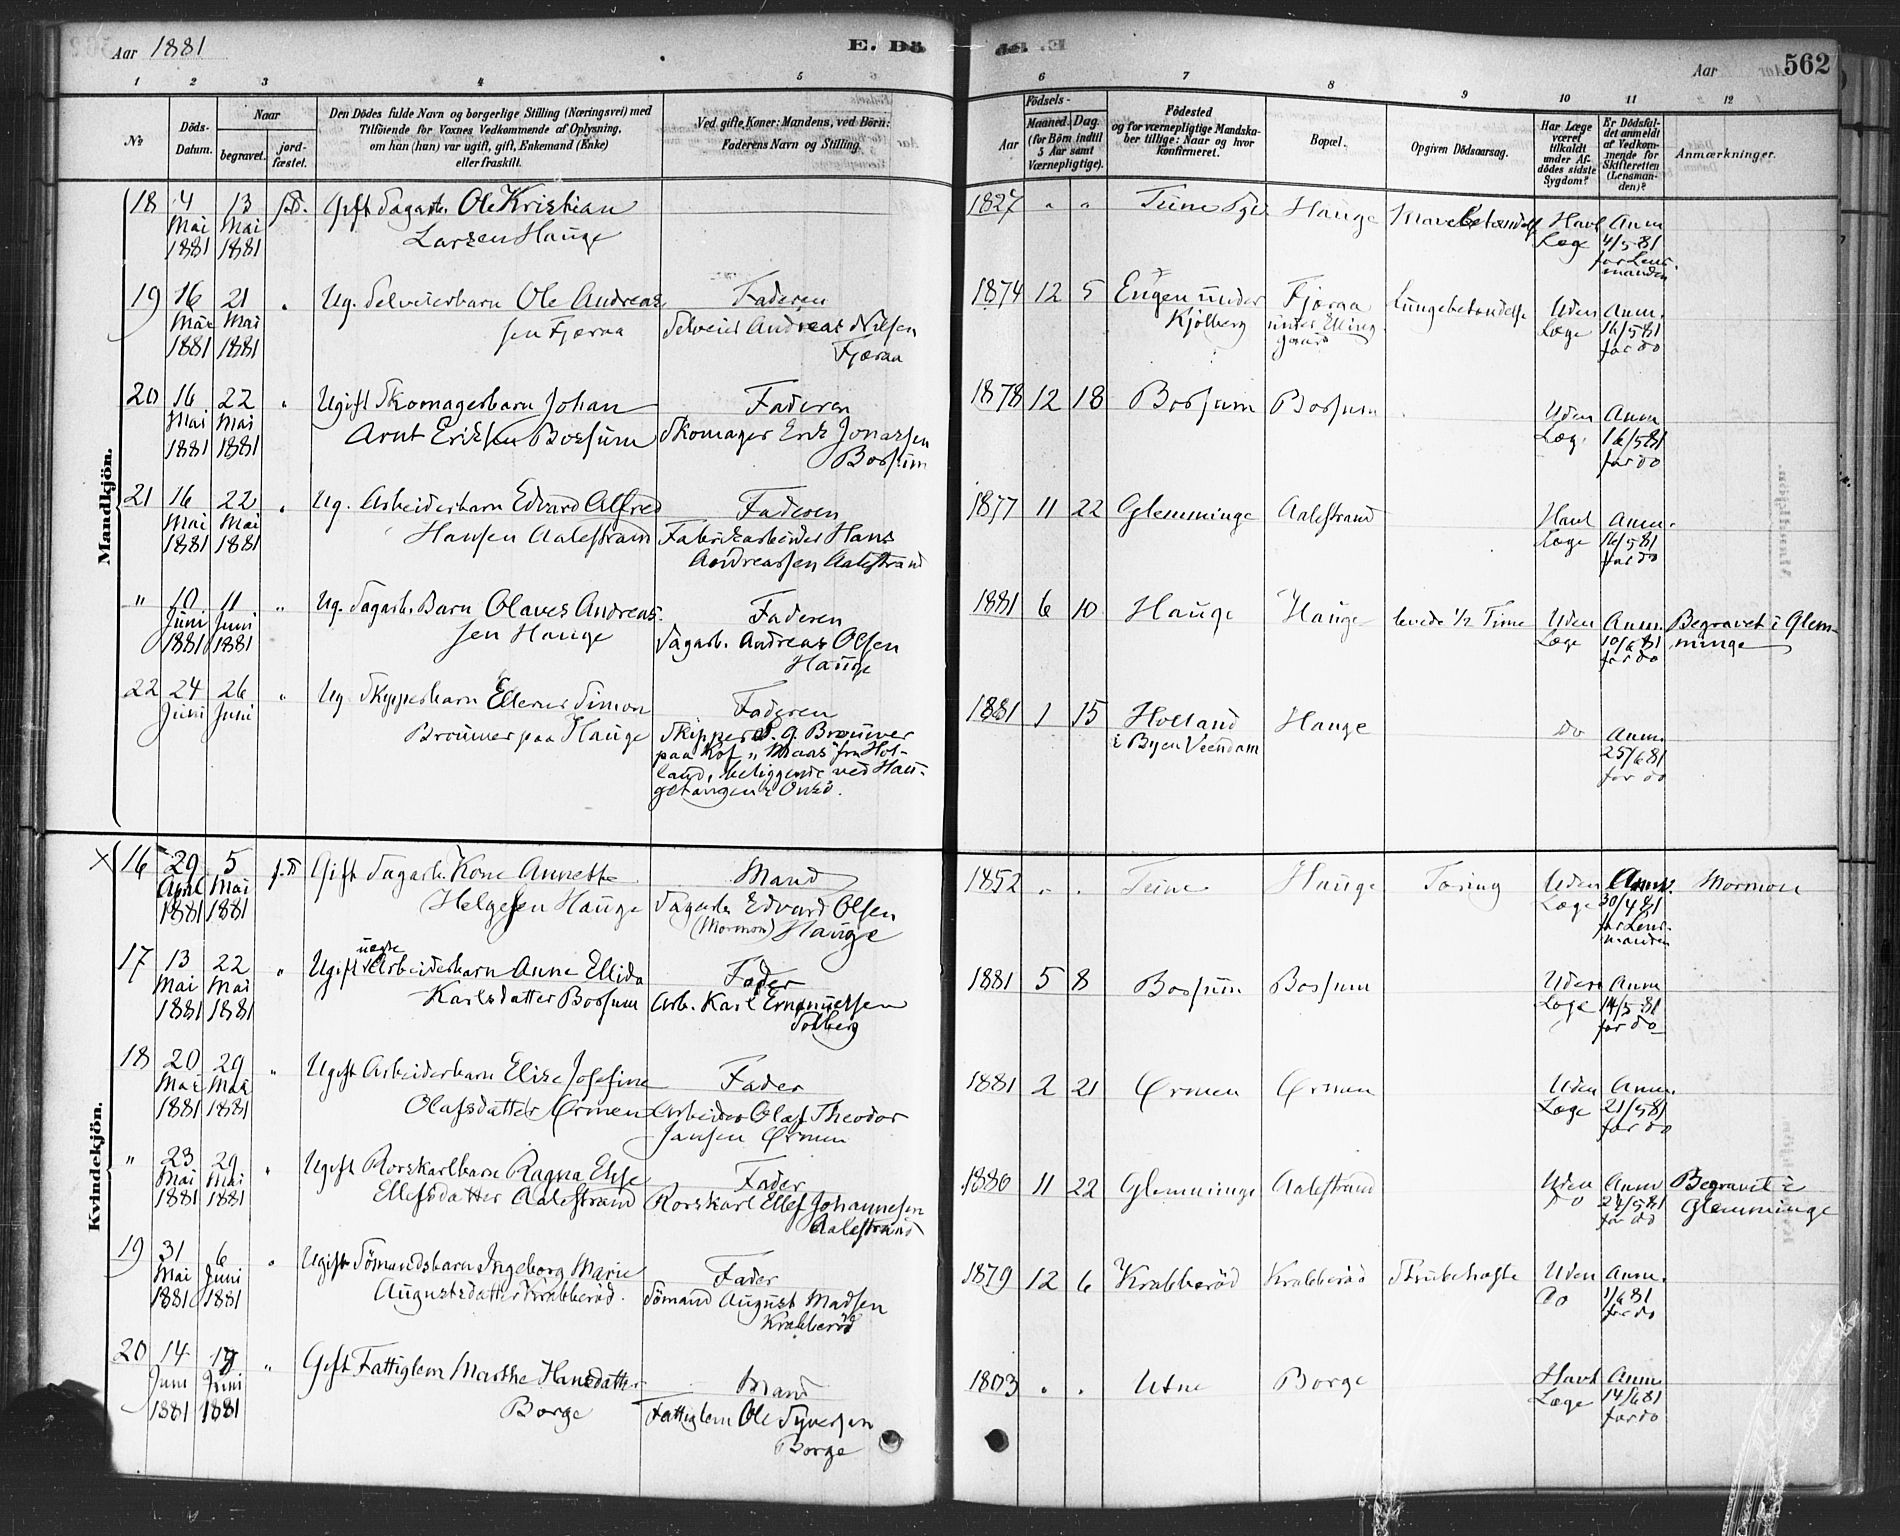 Aar 1881
E. Dö
de. E.
Aar
562
1 2 3 4 5 6 7 8 9 10 11 12
№
Döds-Datum.
Naar
begravet.
jord-fæstet.
Den Dödes fulde Navn og borgerlige Stilling (Næringsvei) med
Tilföiende for Voxnes Vedkommende af Oplysning,
om han (hun) var ugift, gift, Enkemand (Enke)
eller fraskilt.
Ved gifte Koner: Mandens, ved Börn:
Faderens Navn og Stilling.
Födsels-
Aar
Maaned. Dag.
(for Börn indtil
5 Aar samt
Værnepligtige).
Födested
og for værnepligtige Mandska-
ber tillige: Naar og hvor
konfirmeret.
Bopæl.
Opgiven Dödsaarsag.
Har Læge
været
tilkaldt
under Af-
dödes sidste
Sygdom?
Er Dödsfal-
det anmeldt
af Vedkom-
mende for
Skifteretten
(Lensman-
den)?
Anmærkninger.
Mandkjön.
18 4 13 Gift Dagarb. Ole Kristian 1827 " " Tune Hauge Havt Anm
Mai Mai Larsen Hauge Læge 4/5 81
1881 1881 for Lens-
manden
19 16 21 " Ug. Selveierbarn Ole Andreas- Faderen 1874 12 5 Engen under Fjæraa Lungebetændelse Uden Anm.
Mai Mai sen Fjæraa Selveier Andreas Nilsen Kjölberg under Elling- Læge 16/5 81
1881 1881 Fjæraa gaard for do
20 16 22 " Ugift Skomagerbarn Johan Faderen 1878 12 18 Bossum Bossum Uden Anm
Mai Mai Arnt Eriksen Bossum Skomager Erik Jonassen Læg. 16/5 81
1881 1881 Bossum for do
21 16 22 " Ug. Arbeiderbarn Edvard Alfred Faderen 1877 11 22 Glemminge Aalestrand Havt Anm.
Mai Mai Hansen Aalestrand Fabrikarbeider Hans Læge 16/5 81
1881 1881 Andreassen Aalestrand for do
" 10 11 " Ug. Dagarb. Barn Olaves Andreas- Faderen 1881 6 10 Hauge Hauge levede 1/2 Time Uden Anm. Begravet i Glem-
Juni Juni sen Hauge Dagarb. Andreas Olsen Læge 10/6 81 minge
1881 1881 Hauge for do
22 24 26 " Ug Skipperbarn Ellerus Simon Faderen 1881 1 15 Holland Hauge do Anm.
Juni Juni Brouwer paa Hauge Skipper S. G. Brouwer i Byen Veendam 25/6 81
paa Kof „Maas" fra Hol- for do
land, beliggende ved Hau-
getangen i Onsö.
Kvindekjön.
× 16 29 5 j.d Gift Dagarb. Kone Annette Mand 1852 " " Tune Hauge Tæring Uden Anm. Mormon
April Mai Helgesen Hauge Dagarb. Edvard Olsen Læge 30/4 81
1881 1881 (Mormon) Hauge for Lens-
manden
17 13 22 " Ugift uegte Arbeiderbarn Anne Ellida Fader 1881 5 8 Bossum Bossum Uden Anm
Mai Mai Karlsdatter Bossum Arb. Karl Emanuelsen Læge 14/5 81
1881 1881 Solberg for do
18 20 29 " Ugift Arbeiderbarn Elise Josefine Fader 1881 2 21 Ørmen Ørmen Uden Anm.
Mai Mai Olafsdatter Ørmen Arbeider Olaf Theodor Læge 21/5 81
1881 1881 Jansen Ørmen for do
" 23 29 " Ugift Rorskarlbarn Ragna Elise Fader 1880 11 22 Glemminge Aalestrand Uden Anm Begravet i
Mai Mai Ellefsdatter Aalestrand Rorskarl Ellef Johannesen do 24/5 81 Glemminge
1881 1881 Aalestrand for do
19 31 6 " Ugift Sömandsbarn Ingeborg Marie Fader 1879 12 6 Krabberöd Krabberöd Strubehoste Uden Anm.
Mai Juni Augustsdatter Krabberöd. Sömand August Madsen do 1/6 81
1881 1881 Krabberöd for do
20 14 19 " Gift Fattiglem Marthe Hansdatter Mand 1803 " " Utne Borge Havt Anm
Juni Juni Borge Fattiglem Ole Syversen Læge 14/6 81
1881 1881 Borge for do